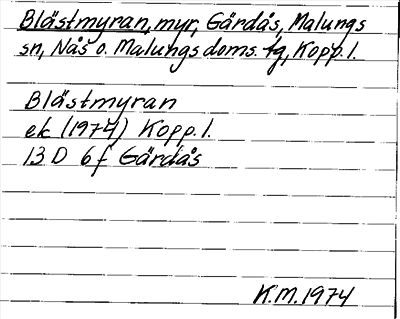 Blästmyran, myr, Gärdås, Malungs
sn, Nås o. Malungs doms fg, Kopp. l.
Blästmyran
ek (1974) Kopp. l.
13 D 6 f Gärdås
K.M. 1974